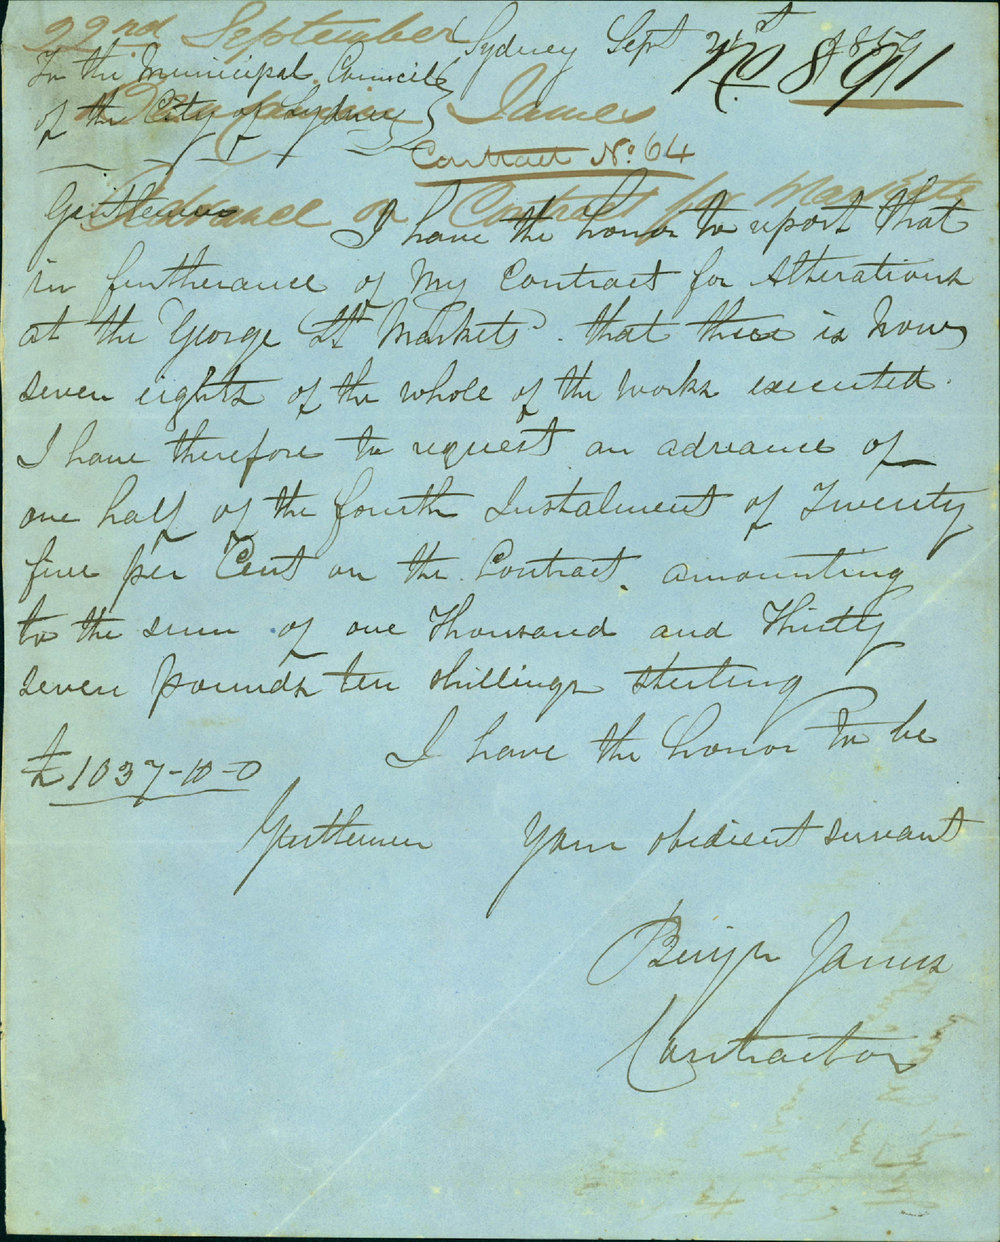 22nd September
Sydney Sept 21st 1859
No 891
To the Municipal Council
of the City of Sydney
Benjamin James
Contract No. 64
Advance on Contract for Markets
Gentlemen
I have the honor to report that
in furtherance of My Contract for Alterations
at the George St Markets. that there is now
seven eights of the whole of the works executed.
I have therefore to request an advance of
one half of the fourth Instalment of Twenty
five per Cent on the Contract. amounting
to the sum of one Thousand and Thirty
seven pounds ten shillings sterling
£1037-10-0
I have the honor to be
Gentlemen Your obedient servant
Benjn James
Contractor